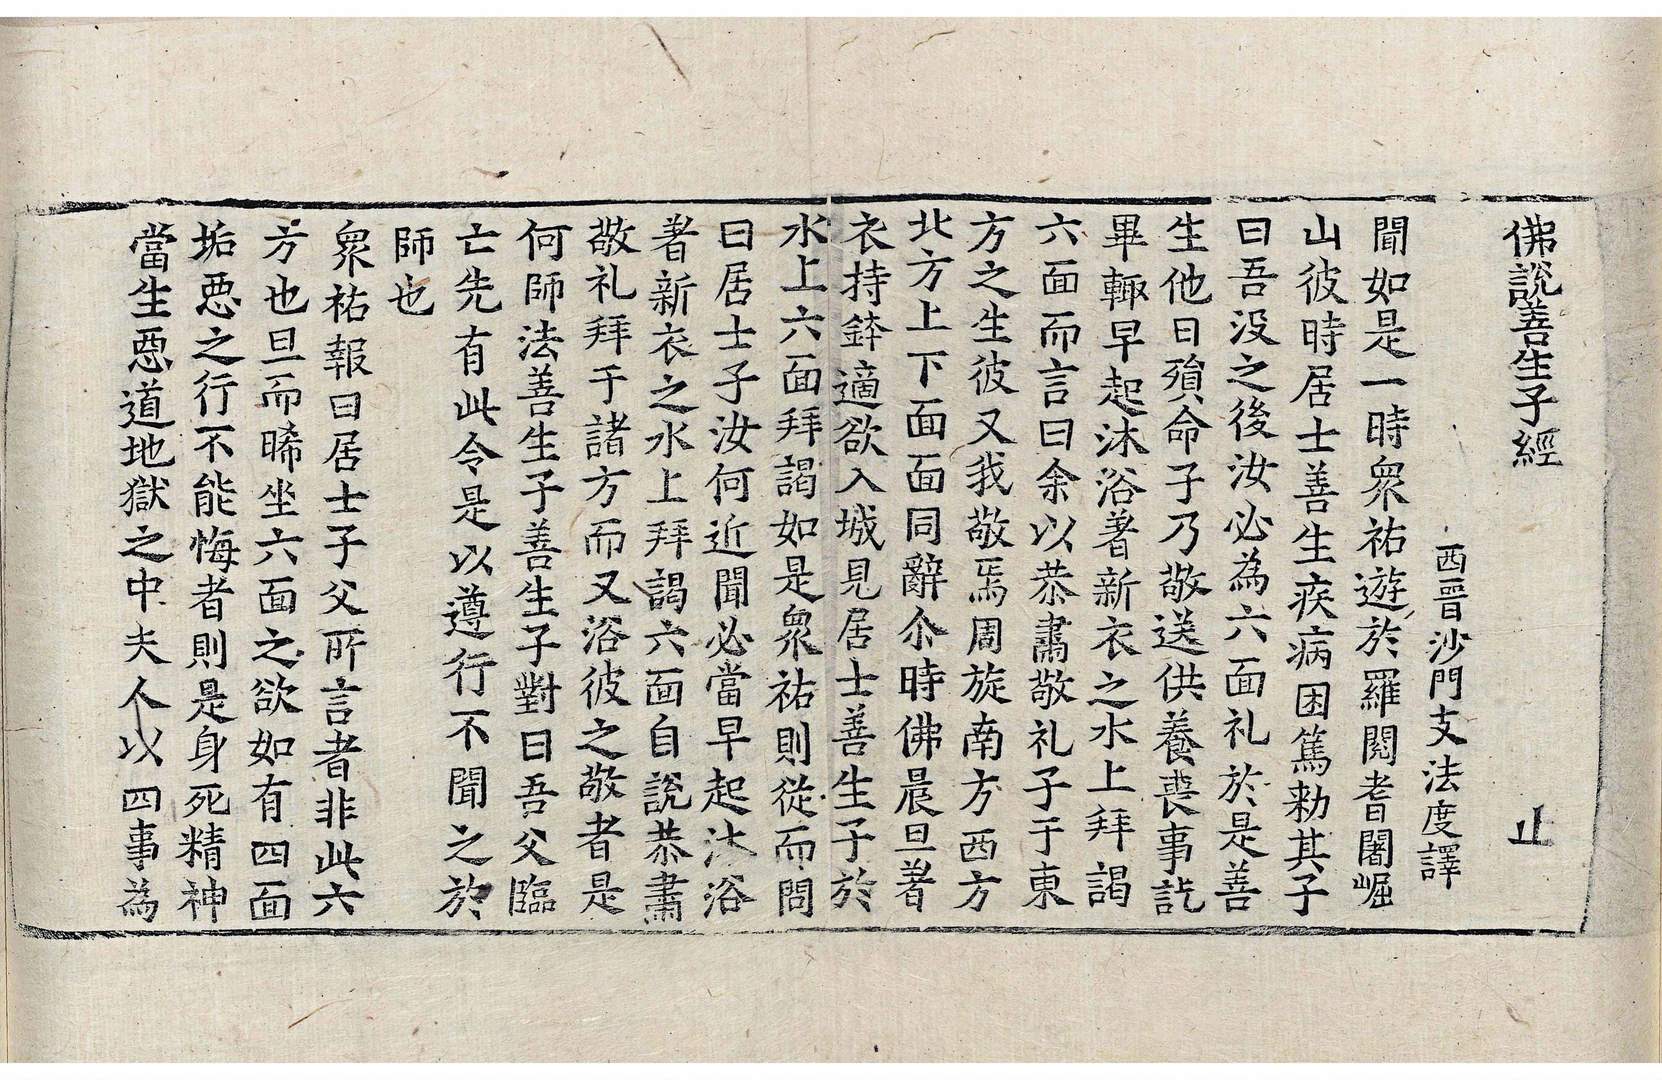 佛說善生子經 止
西晉沙門支法度譯
聞如是一時衆祐遊於羅閱耆闍崛
山彼時居士善生疾病困篤勑其子
曰吾没之後汝必為六面礼於是善
生他日殞命子乃敬送供養喪事訖
畢輙早起沐浴著新衣之水上拜謁
六面而言曰余以恭肅敬礼子于東
方之生彼又我敬焉周旋南方西方
北方上下面面同辭尒時佛晨旦著
衣持鉢適欲入城見居士善生子於
水上六面拜謁如是衆祐則從而問
曰居士子汝何近聞必當早起沐浴
著新衣之水上拜謁六面自說恭肅
敬礼拜于諸方而又浴彼之敬者是
何師法善生子善生子對曰吾父臨
亡先有此令是以遵行不聞之於
師也
衆祐報曰居士子父所言者非此六
方也旦而晞坐六面之欲如有四面
垢惡之行不能悔者則是身死精神
當生惡道地獄之中夫人以四事為